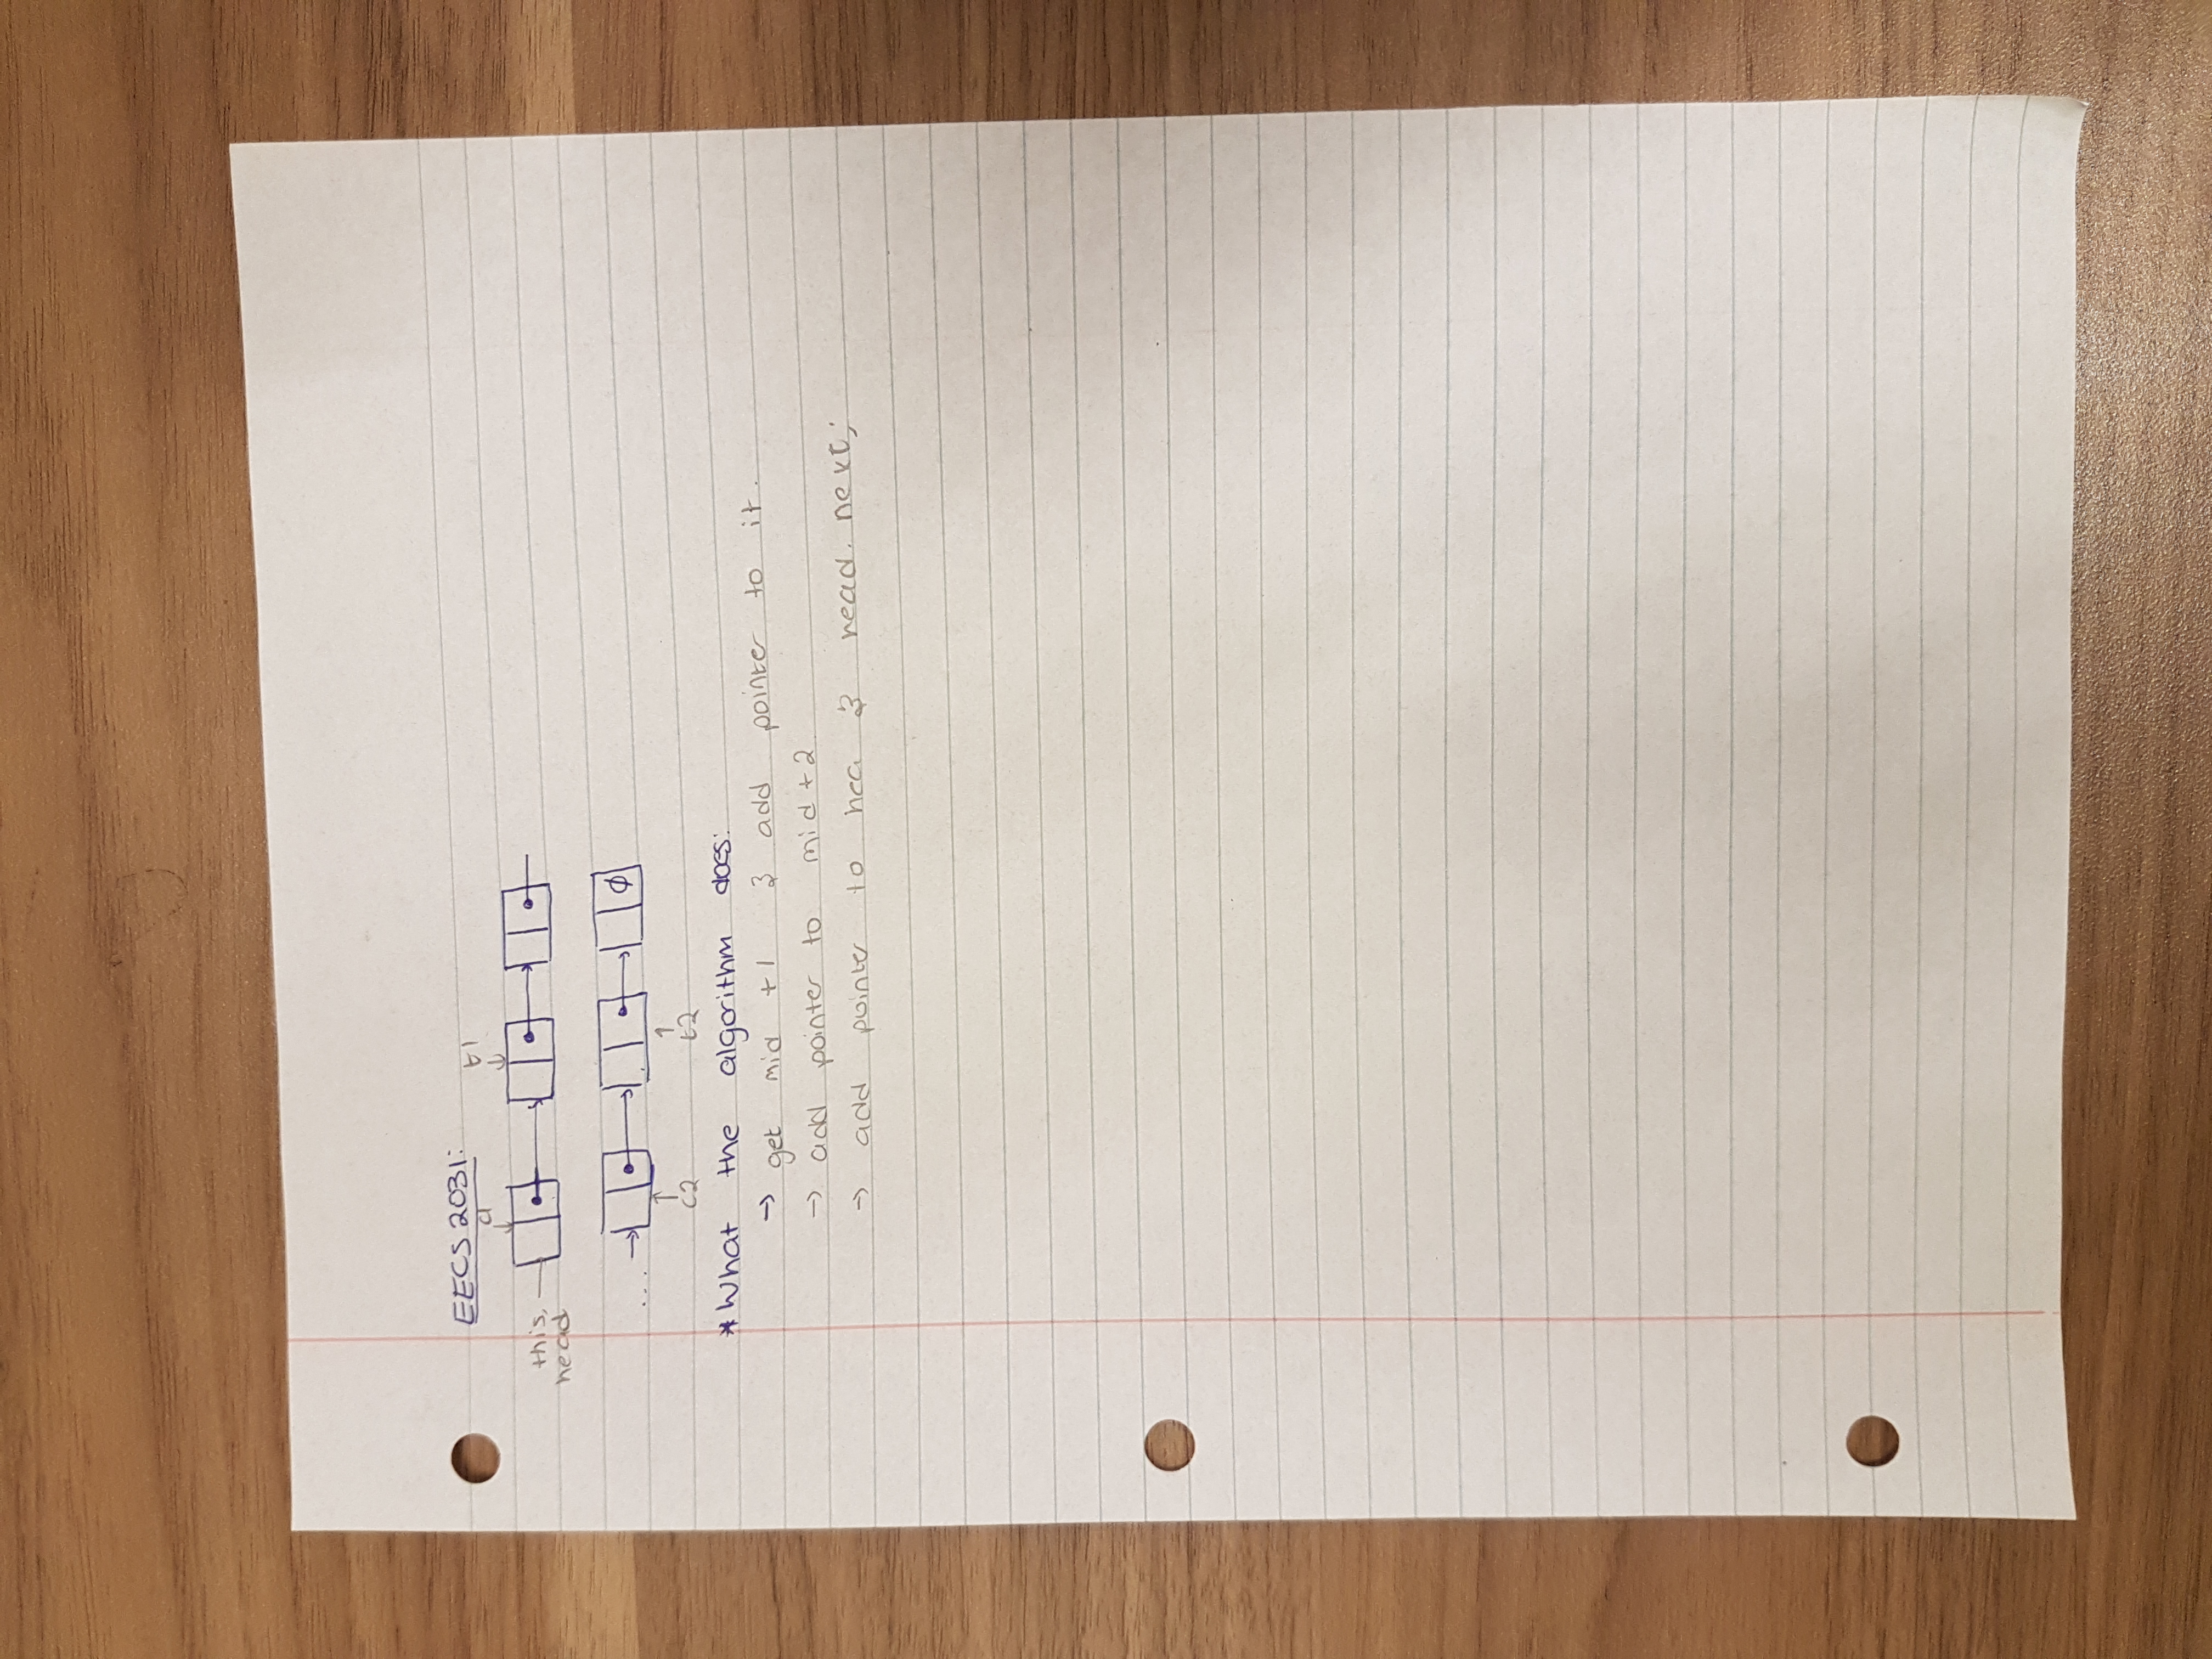 EECS 2031:
t1
this.
head
...
c2 t2
* What the algorithm does:
→ get mid +1 & add pointer to it.
→ add pointer to mid+2
→ add pointer to hea & head.next;